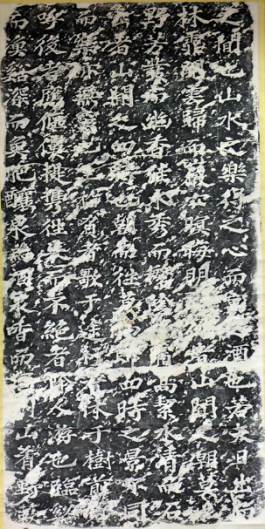 之間也山水之樂得之心而寓酒也若夫日出而
林霏開雲歸而巖穴暝晦明者山間之朝暮
野芳發而幽香佳木秀而繁陰高潔水清而石
者山間之四時也朝而往暮歸四時之景不同
而樂亦無窮也至負者歌于塗行休于樹
呼後者應傴僂提攜往來而不絕者滁人游也臨谿
而漁谿深而魚肥釀泉為酒泉香而洌山肴野